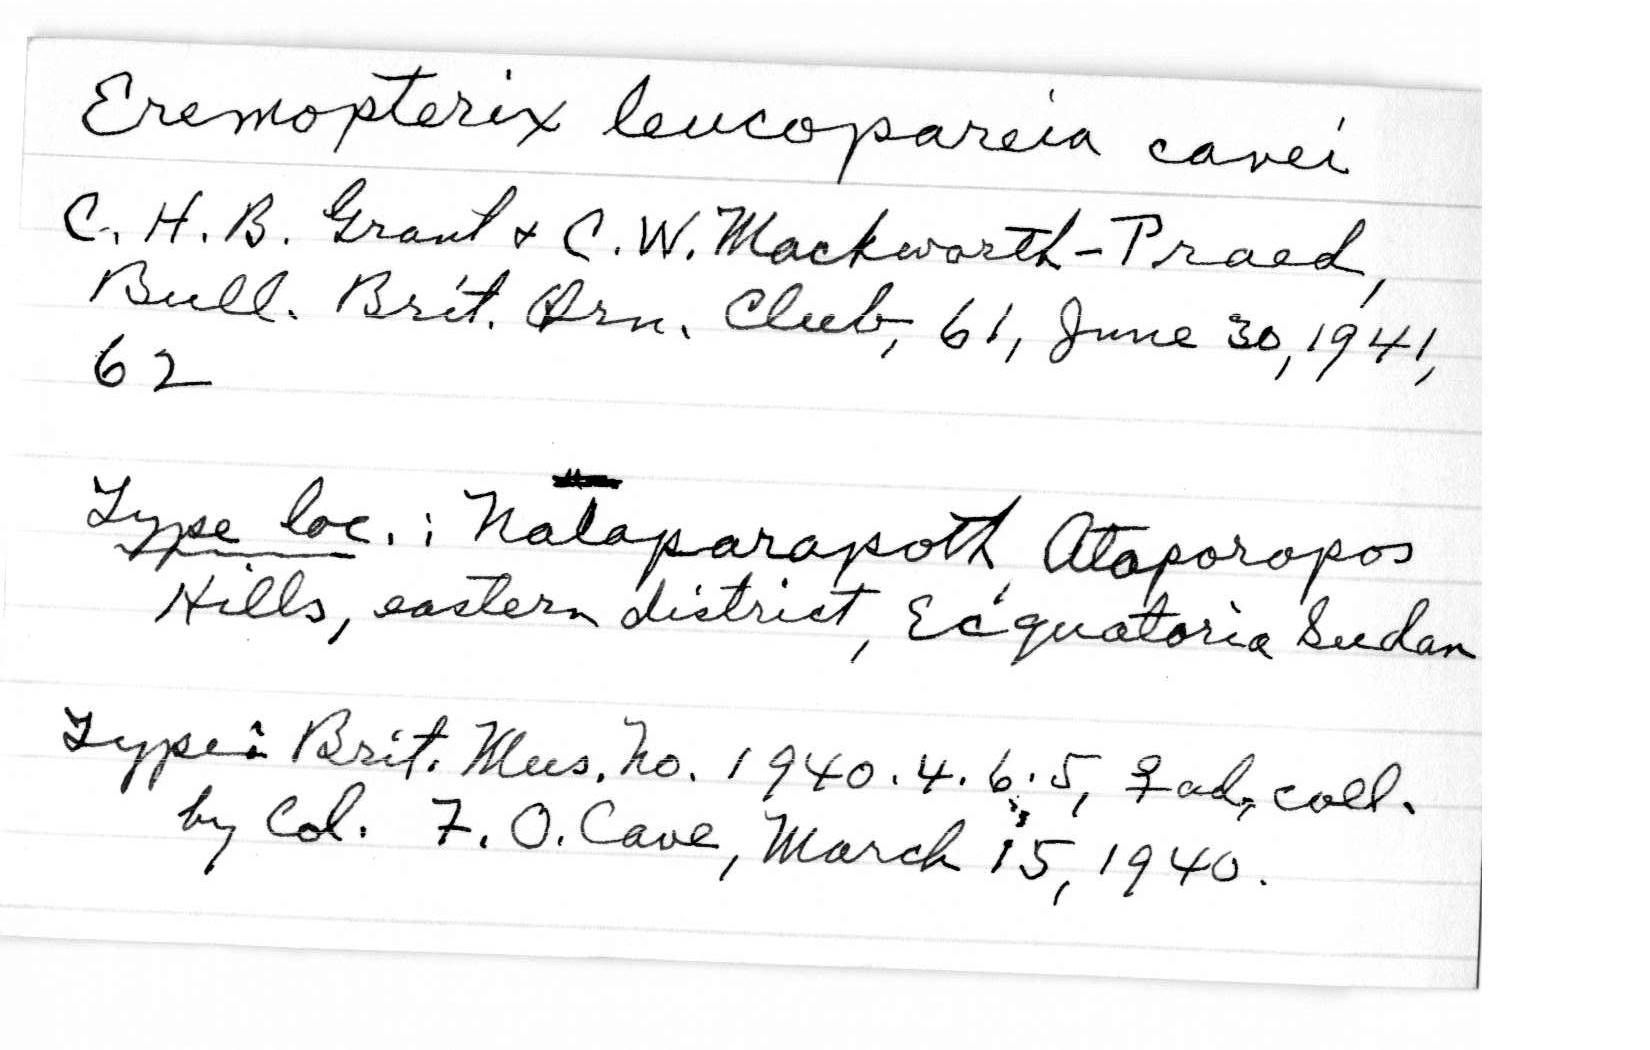 Eremopterix leucopareia cavei
C. H. B. Grant & C. W. Mackworth-Praed,
Bull. Brit. Orn. Club, 61, June 30, 1941,
62
Type loc.: Nalaparapoth Ataporopos
Hills, eastern district, Ecquatoria Sudan
Type: Brit. Mus. No. 1940.4.6.5, ♀ ad., coll.
by Col. F. O. Cave, March 15, 1940.